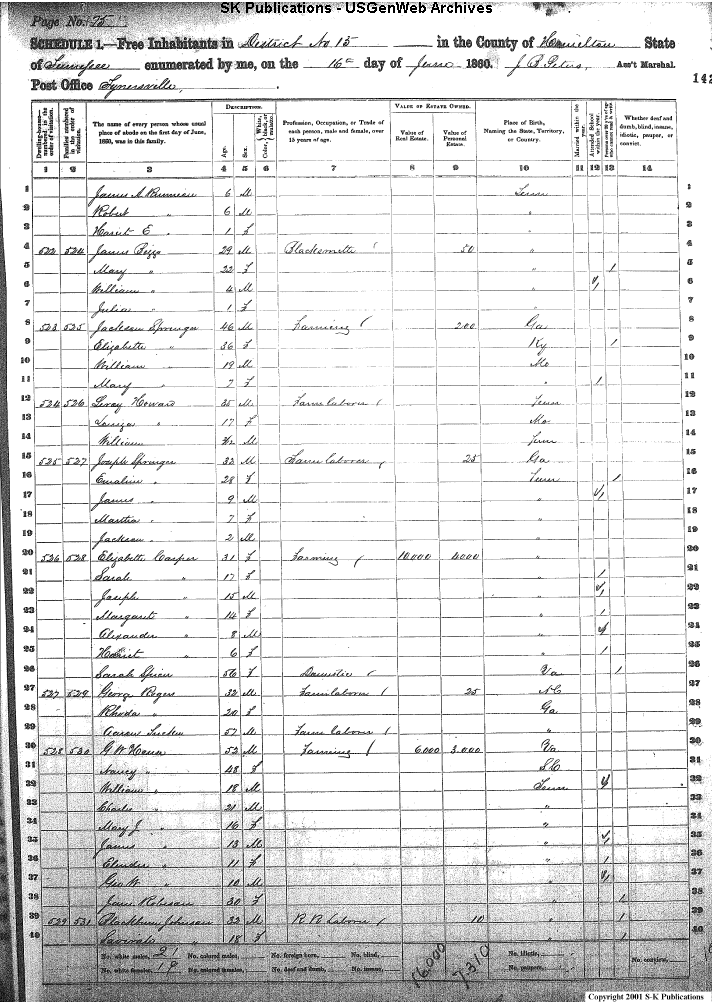 SK Publications - USGenWeb Archives
Page No. 75
SCHEDULE 1.—Free Inhabitants in District No 15 in the County of Hamilton State
of Tennessee enumerated by me, on the 16th day of June 1860. J B Peters, Ass't Marshal.
Post Office Tynersville, 142
Dwelling-houses—numbered in the order of visitation.
Families numbered in the order of visitation.
The name of every person whose usual place of abode on the first day of June, 1860, was in this family.
DESCRIPTION.
Age.
Sex.
Color, White, black, or mulatto.
Profession, Occupation, or Trade of each person, male and female, over 15 years of age.
VALUE OF ESTATE OWNED.
Value of Real Estate.
Value of Personal Estate.
Place of Birth, Naming the State, Territory, or Country.
Married within the year.
Attended School within the year.
Persons over 20 y'rs of age who cannot read & write.
Whether deaf and dumb, blind, insane, idiotic, pauper, or convict.
1 2 3 4 5 6 7 8 9 10 11 12 13 14
1 James A 6 M Tenn 1
2 Robert " 6 M " 2
3 Hariet E " 1 F " 3
4 522 524 James 29 M Blacksmith / 50 " 4
5 Mary " 22 F " 1 5
6 William " 4 M " 6
7 Julia " 1 F " 7
8 523 525 Jackson Springer 46 M Farming / 200 Ga 8
9 Elizabeth " 36 F Ky 1 9
10 William " 19 M Mo 10
11 Mary " 7 F " 1 11
12 524 526 Leroy Howard 35 M Farm laborer / Tenn 12
13 Louiza " 17 F Mo 13
14 William M Tenn 14
15 525 527 Joseph Springer 32 M Farm laborer / 25 Ga 15
16 Emaline " 28 F Tenn 1 16
17 James " 9 M " 17
18 Martha " 7 F " 18
19 Jackson " 2 M 19
20 526 528 Elizabeth Carper 31 F Farming / 10,000 4000 20
21 Sarah " 17 F " 1 21
22 Joseph " 15 M " 22
23 Margaret " 14 F " 1 23
24 Alexander " 8 M " 24
25 Hariet " 6 F " 1 25
26 Sarah Spicer 56 F Domestic / Va 1 26
27 527 529 George Rogers 32 M Farm laborer / 25 N C 27
28 Rhoda " 20 F Ga 28
29 Aaron 57 M Farm laborer / " 29
30 528 530 G W Hann 52 M Farming / 6,000 3,000 Va 30
31 Nancy " 48 F S C 31
32 William " 18 M Tenn 32
33 Charles " 21 M " 33
34 Mary J " 16 F " 34
35 James " 13 M " 35
36 " 11 F " 1 36
37 Geo W " 10 M " 37
38 Jane Robinson 30 F " 1 38
39 529 531 Blackburn Johnson 33 M R R Laborer / 10 " 1 39
40 " 18 F " 1 40
No. white males, 21 No. colored males, No. foreign born, No. blind, 16,000 7310 No. idiotic, No. convicts,
No. white females, 19 No. colored females, No. deaf and dumb, No. insane, No. paupers,
Copyright 2001 S-K Publications